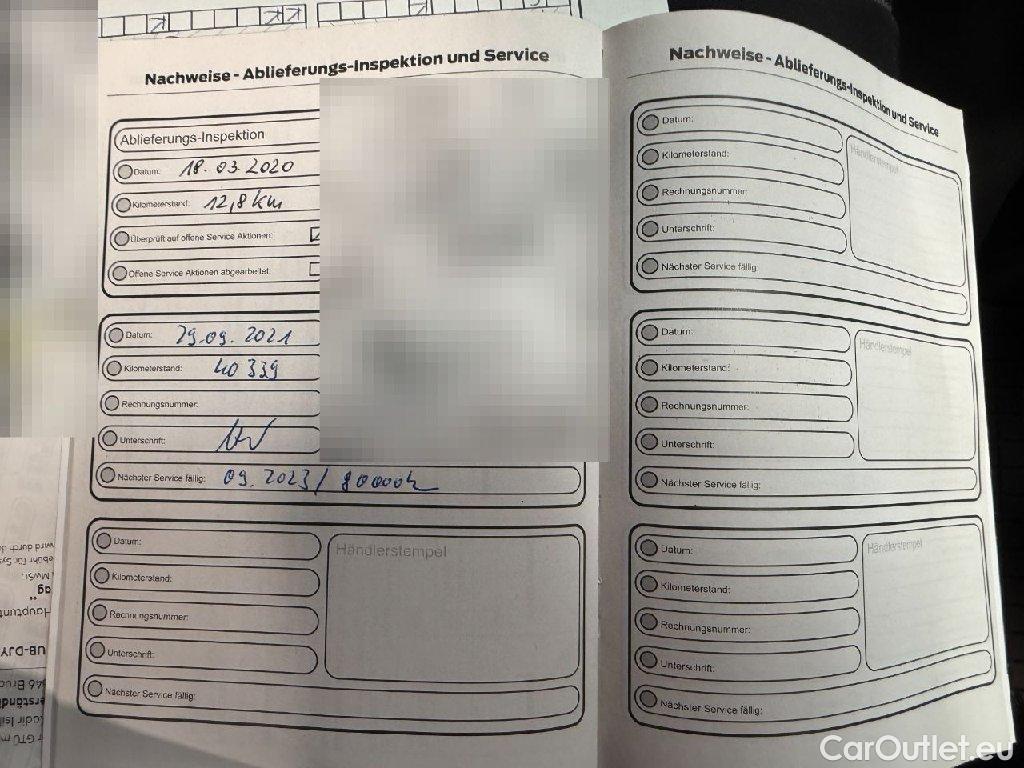 Nachweise - Ablieferungs-Inspektion und Service
Ablieferungs-Inspektion
Datum: 18.03.2020
Kilometerstand: 12,8 km
Überprüft auf offene Service Aktionen:
Offene Service Aktionen abgearbeitet:
Datum: 29.09.2021
Kilometerstand: 40 339
Rechnungsnummer:
Unterschrift:
Nächster Service fällig: 09.2023 / 80000k
Datum:
Kilometerstand:
Rechnungsnummer:
Unterschrift:
Nächster Service fällig:
Händlerstempel
Nachweise - Ablieferungs-Inspektion und Service
Datum:
Kilometerstand:
Rechnungsnummer:
Unterschrift:
Nächster Service fällig:
Händlerstempel
Datum:
Kilometerstand:
Rechnungsnummer:
Unterschrift:
Nächster Service fällig:
Händlerstempel
Datum:
Kilometerstand:
Rechnungsnummer:
Unterschrift:
Nächster Service fällig:
Händlerstempel
wird durch
MwSt.
UB-DJY
CarOutlet.eu